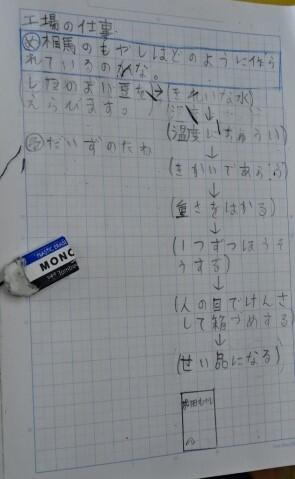 工場の仕事
め 相馬のもやしはどのように作ら
れているのかな。
しつのよい豆を→(きれいな水)
えらびます。
↓
(温度にちゅうい)
だいずのたね
↓
(きかいであらう)
↓
(重さをはかる)
↓
(1つずつほうそ
うする)
↓
(人の目でけんさ
して箱づめする)
↓
(せい品になる)
もやし
MONO
Tombow